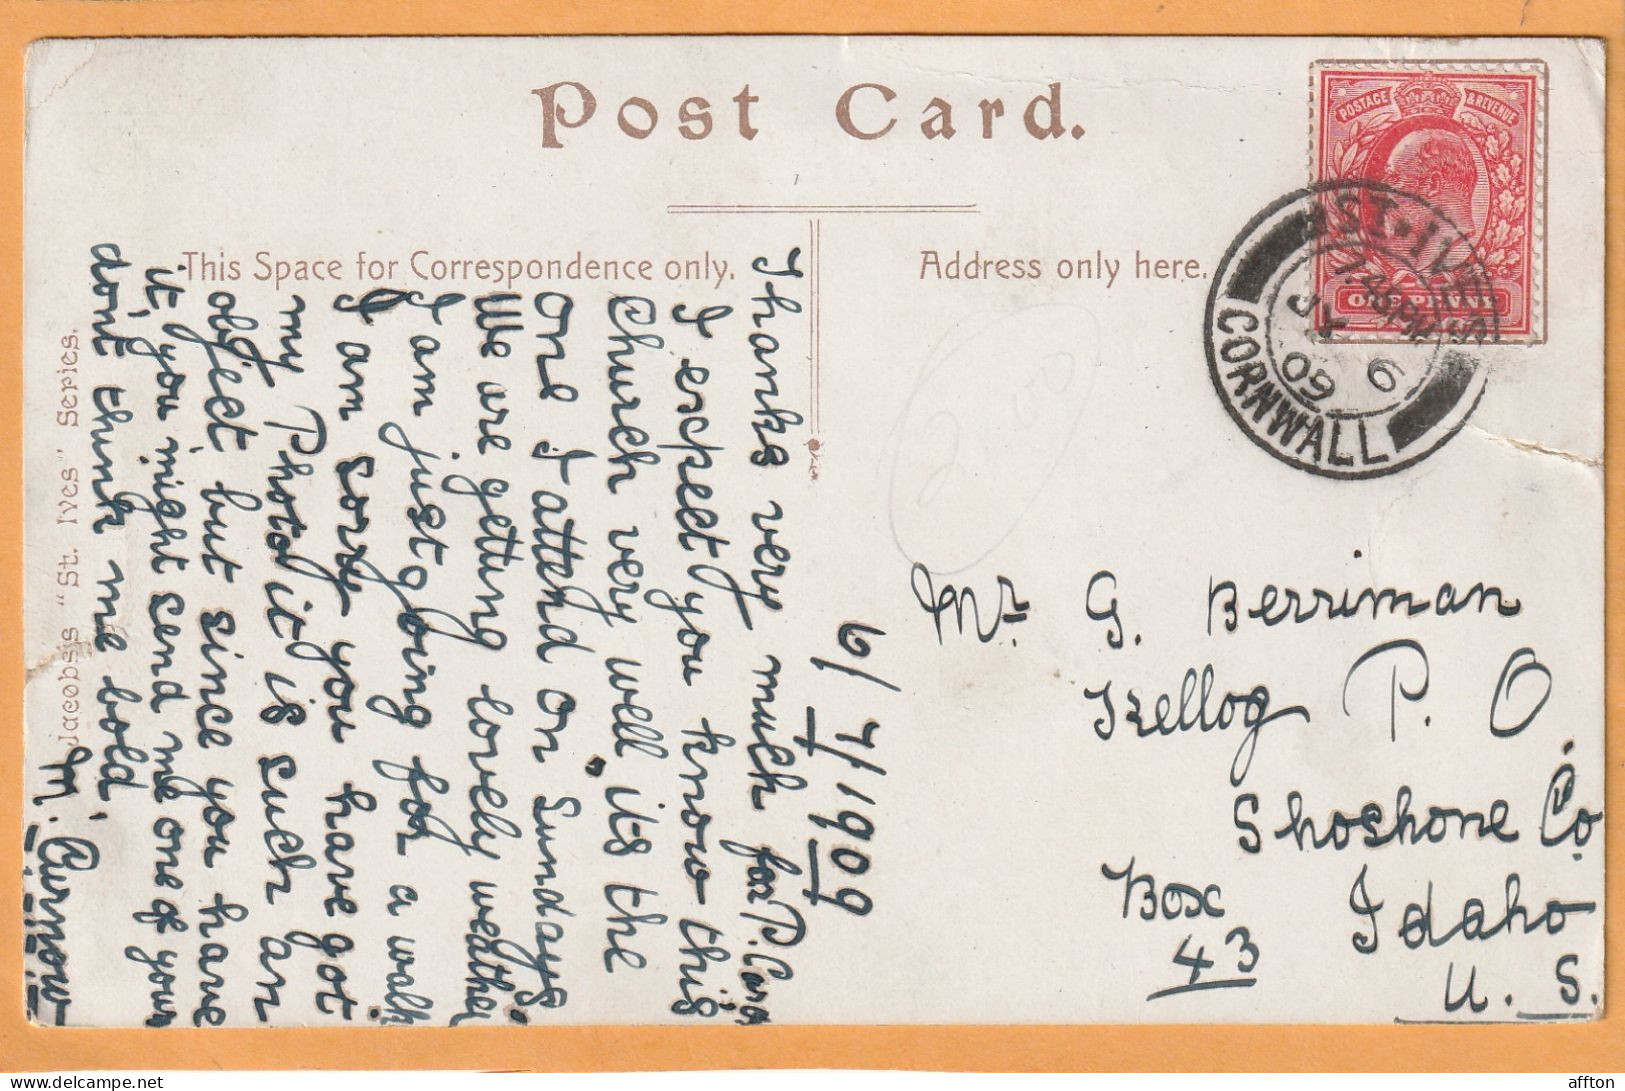 Post Card.
This Space for Correspondence only.
Address only here.
POSTAGE & REVENUE
ONE PENNY
ST. IVES
7.45 PM
JY 6
09
CORNWALL
6/7/1909
Thanks very much for P. Card
I expect you know this
Church very well, its the
one I attend on Sundays.
We are getting lovely weather
I am just going for a walk
I am sorry you have got
my Photo it is such an
object but since you have
it, you might send me one of your
don't think me bold
M. Curnow
Jacobs's "St. Ives" Series.
Mr. G. Berriman
Kellog P. O.
Shoshone Co.
Box Idaho
43 U. S.
affton